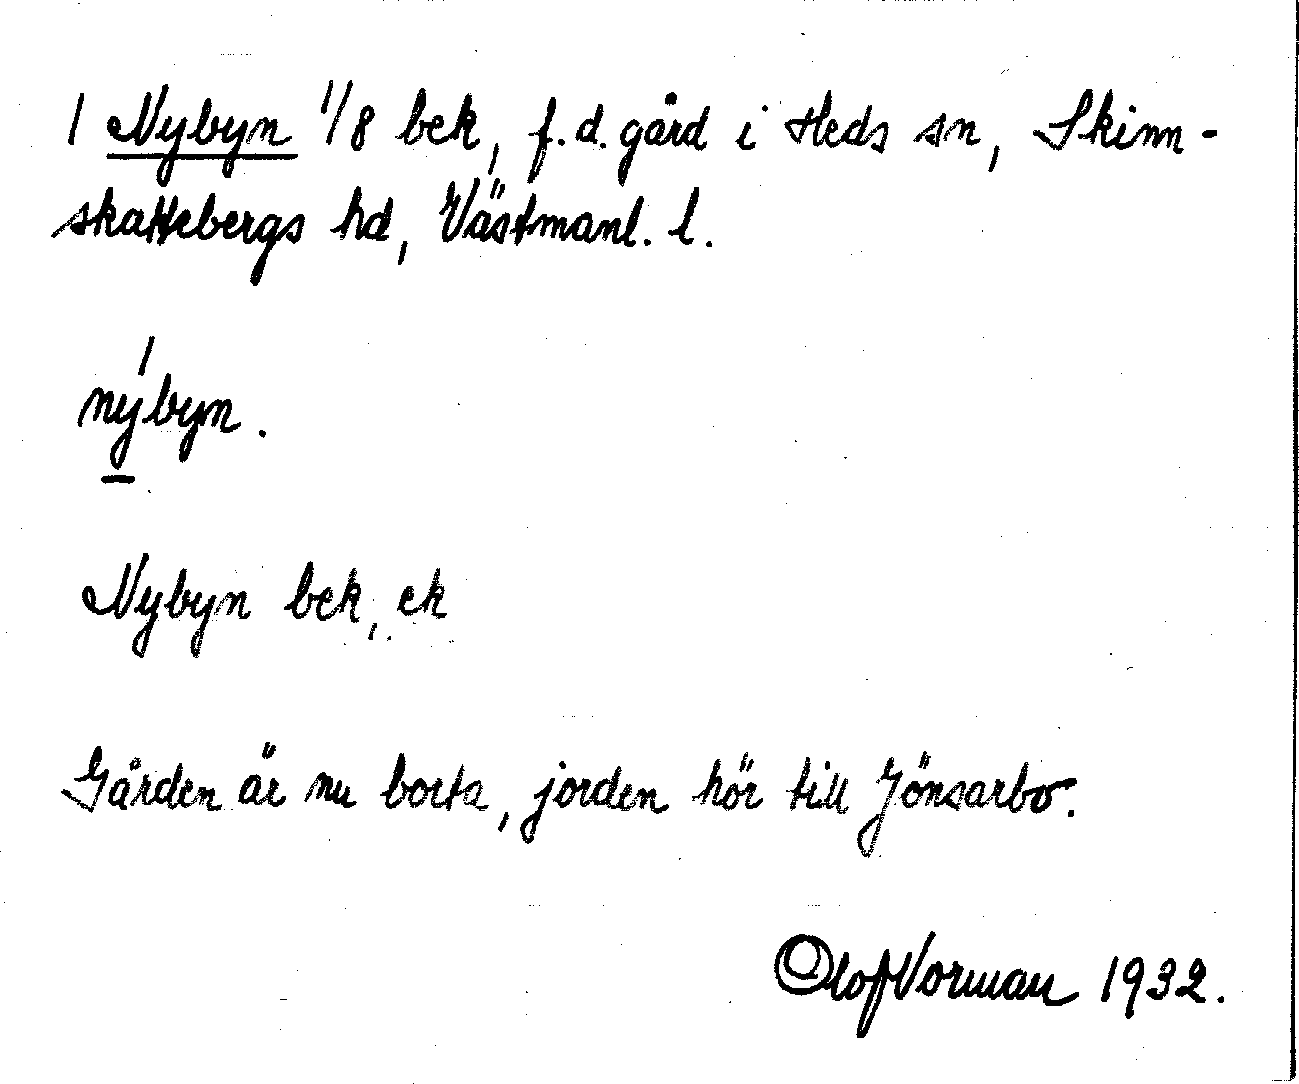 1 Nybyn 1/8 bek, f.d. gård i Heds sn, Skinn-
skattebergs hd, Västmanl. l.
nýbyn.
Nybyn bek, ek
Gården är nu borta, jorden hör till Jönsarbo.
Olof Norman 1932.